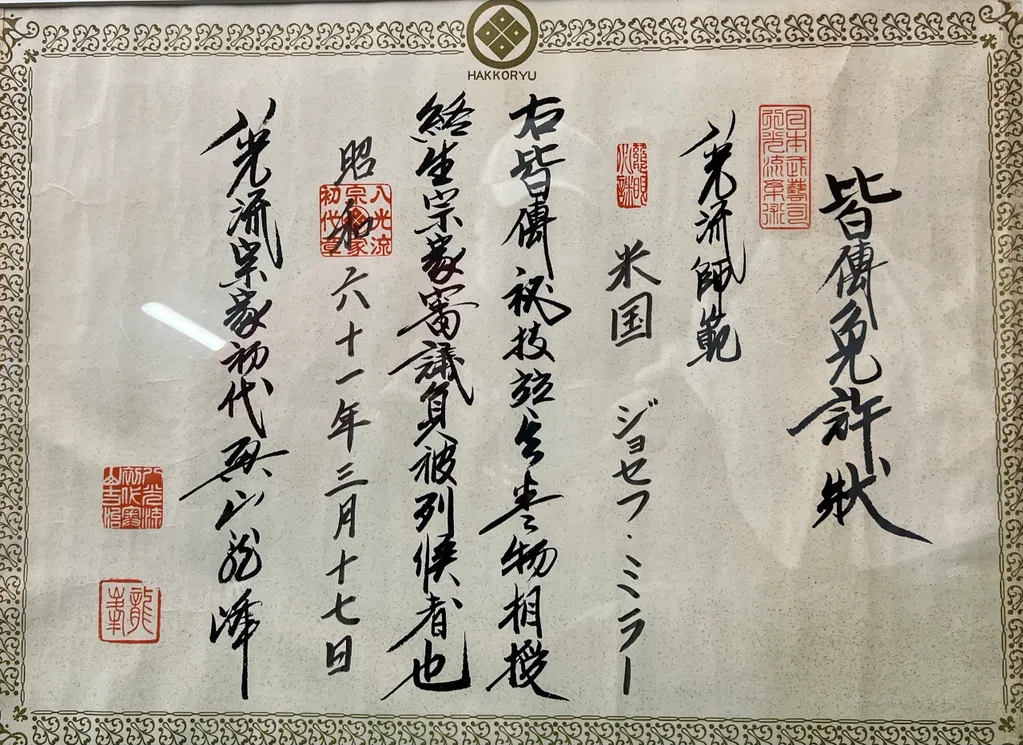 HAKKORYU
皆傳免許狀
日本武藝司
八光流柔術
八光流師範
米国 ジョセフ・ミラー
右皆傳祕技巻物相授
終生宗家審議員被列候者也
昭和六十一年三月十七日
八光流
宗家
初代章
八光流宗家初代奥山龍峰
龍峯